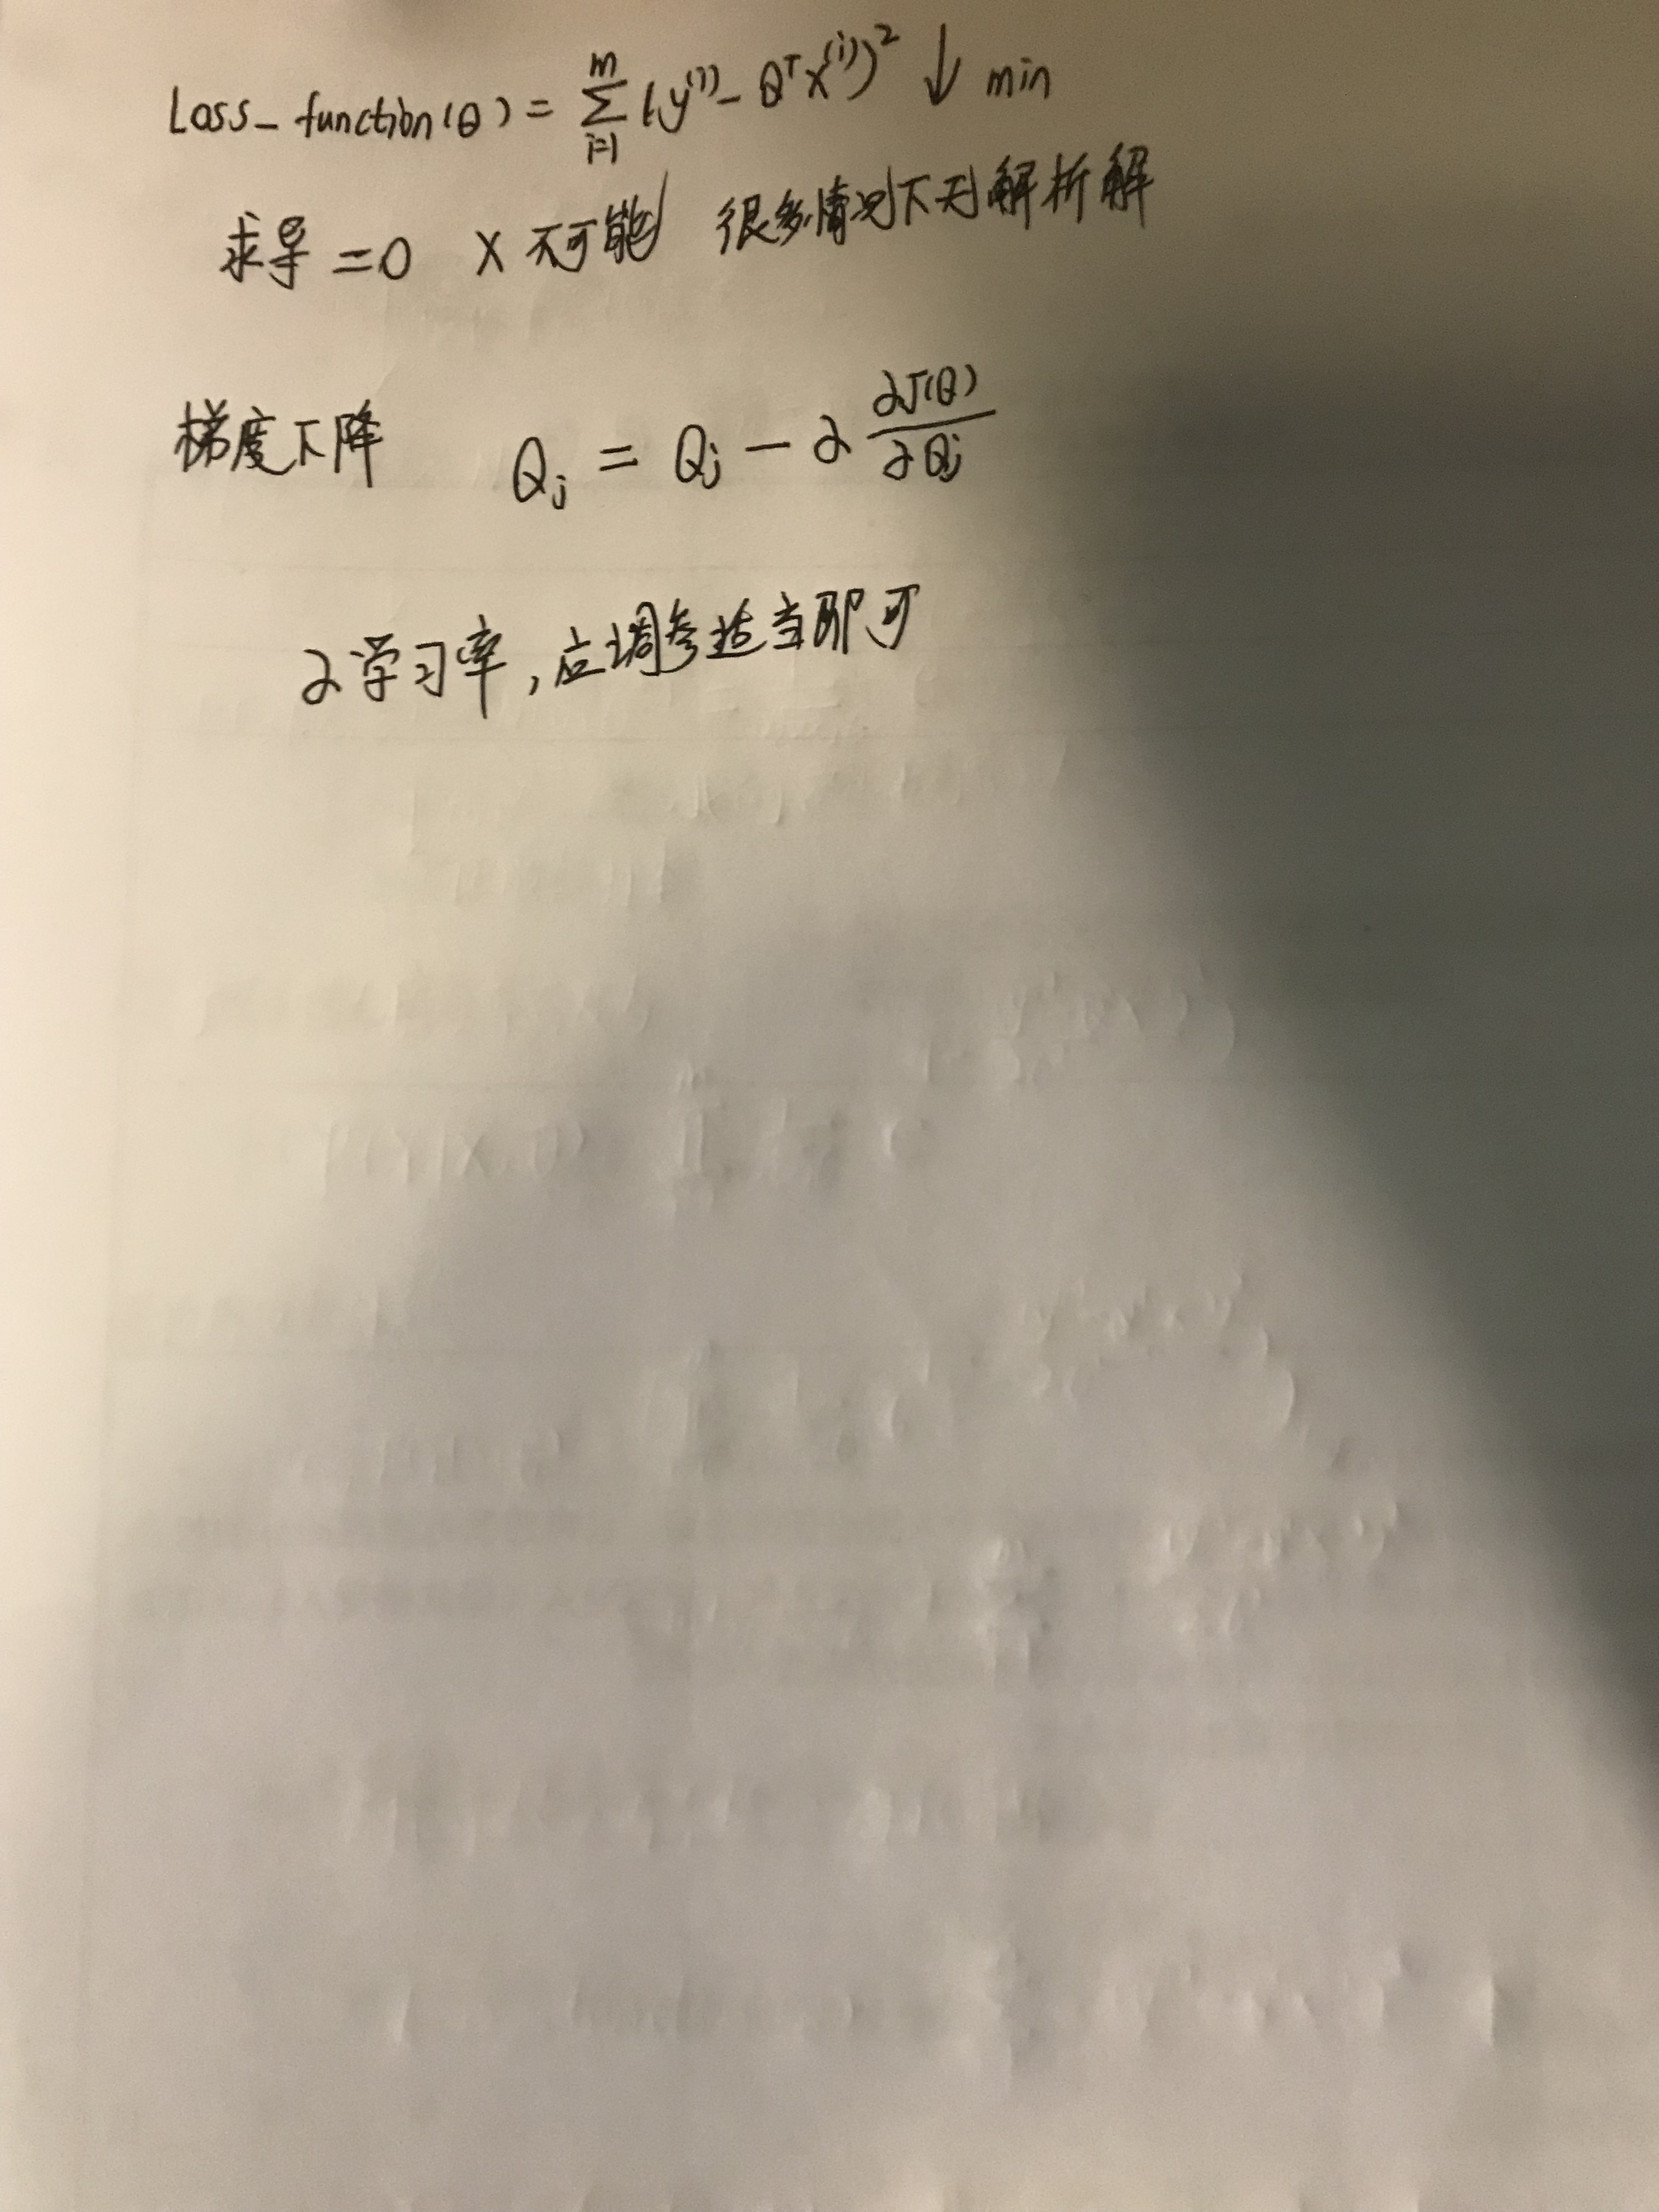 Loss_function(θ) = \sum_{i=1}^{m} (y^{(i)} - θ^T x^{(i)})^2 ↓ min
求导 =0 × 不可能 很多情况下无解析解
梯度下降 θ_j = θ_j - α \frac{∂J(θ)}{∂θ_j}
α学习率,应调参适当即可